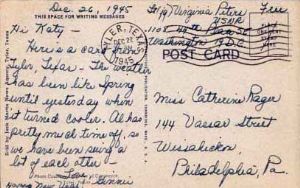 Dec 26, 1945
THIS SPACE FOR WRITING MESSAGES
Hi Katy -
Here's a card from
Tyler, Texas - The weather
has been like Spring
until yesterday when
it turned cooler. Al has
pretty much time off, so
we have been seeing a
lot of each other
Love
Ginnie
Happy New Year!
Virginia Peters
USNR
Washington D.C.
Free
TYLER, TEXAS
DEC 27
1945
POST CARD
Miss Catherine Rager
144 Vassar Street
Wissahickon
Philadelphia, Pa.